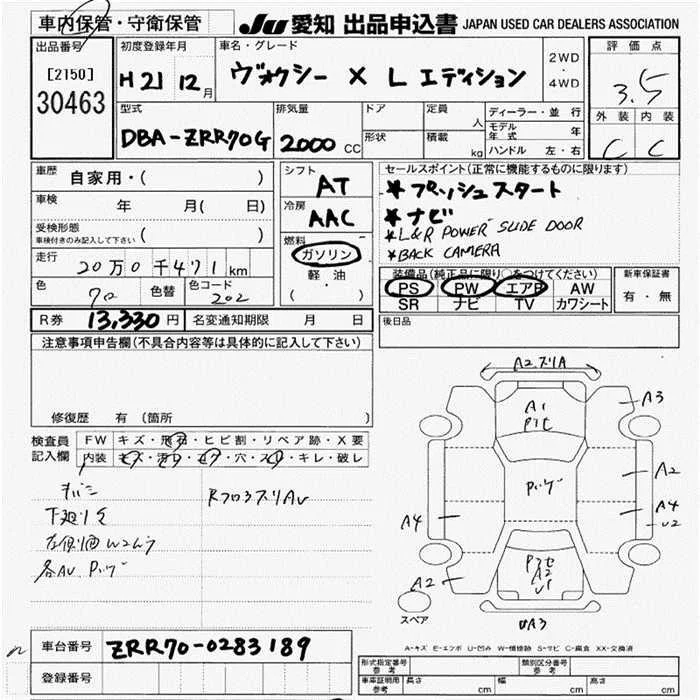 車内保管・守衛保管
JU 愛知 出品申込書 JAPAN USED CAR DEALERS ASSOCIATION
出品番号
[2150]
30463
初度登録年月
H21 12月
車名・グレード
ヴォクシー X L エディション
2WD
・
4WD
評価点
3.5
外装 内装
C C
型式
DBA-ZRR70G
排気量
2000 CC
ドア
形状
定員
人
積載
kg
ディーラー・並行
モデル年式 年
ハンドル 左・右
車歴
自家用・( )
車検 年 月( 日)
受検形態
車検付きのみ記入して下さい ( )
走行
20万0千471km
色
70
色替
色コード
202
シフト
AT
冷房
AAC
燃料
ガソリン
軽油
( )
セールスポイント(正常に機能するものに限ります)
*プッシュスタート
*ナビ
*L&R POWER SLIDE DOOR
*BACK CAMERA
装備品(純正品に限り○をつけてください)
PS PW エアB AW
SR ナビ TV カワシート
新車保証書
有・無
R券 13,330円 名変通知期限 月 日
後日品
注意事項申告欄(不具合内容等は具体的に記入して下さい)
修復歴 有(箇所 )
検査員記入欄
FW キズ・飛石・ヒビ割・リペア跡・X要
内装 キズ・汚れ・コゲ・穴・スレ・キレ・破レ
下廻りS
各AU Pハゲ
A2スリA
A1
A3
Pハゲ
A2
A4
U2
A4
A2
A2
U1
A3
スペア
A-キズ E-エクボ U-凹み W-補修跡 S-サビ C-腐食 XX-交換済
車台番号 ZRR70-0283189
登録番号
形式指定番号 参考
類別区分番号 参考
車庫証明用 参考 長さ cm 幅 cm 高さ cm